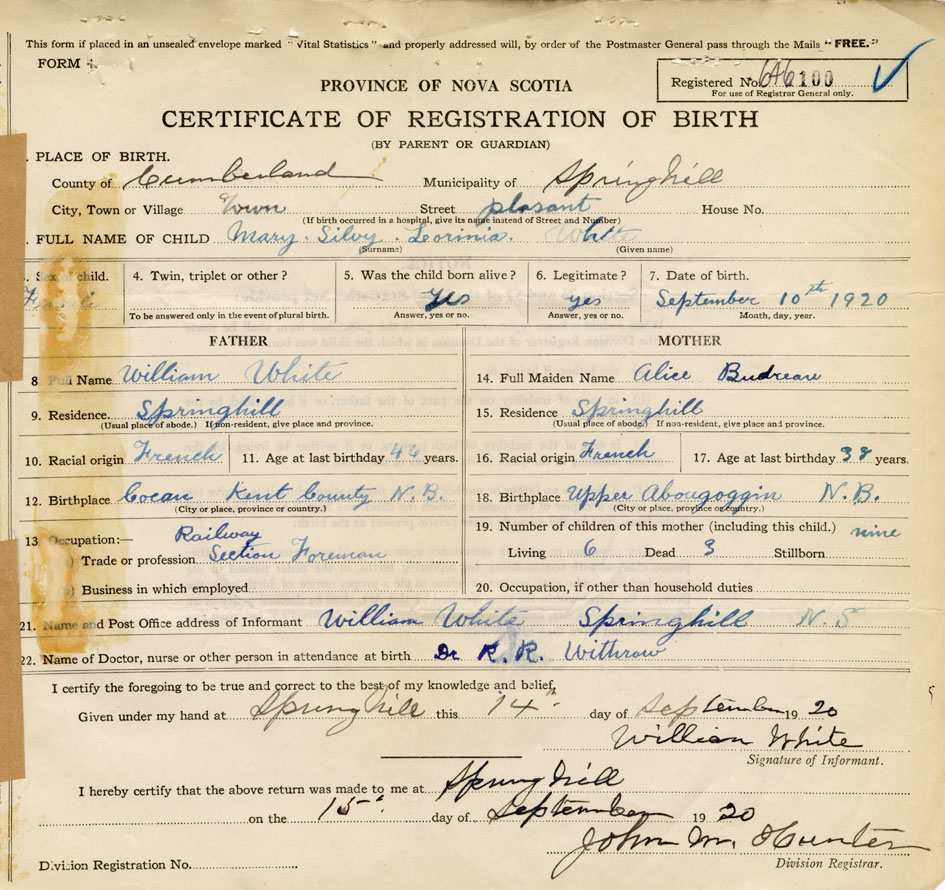 This form if placed in an unsealed envelope marked "Vital Statistics" and properly addressed will, by order of the Postmaster General pass through the Mails "FREE."
FORM
PROVINCE OF NOVA SCOTIA
Registered No. 100
For use of Registrar General only.
CERTIFICATE OF REGISTRATION OF BIRTH
(BY PARENT OR GUARDIAN)
. PLACE OF BIRTH.
County of Cumberland Municipality of Springhill
City, Town or Village Town Street plasant House No.
(If birth occurred in a hospital, give its name instead of Street and Number)
. FULL NAME OF CHILD Mary. Silvy. Lorinia. White
(Surname) (Given name)
. Sex of child. 4. Twin, triplet or other? 5. Was the child born alive? 6. Legitimate? 7. Date of birth.
Female Yes yes September 10th 1920
To be answered only in the event of plural birth. Answer, yes or no. Answer, yes or no. Month, day, year.
FATHER MOTHER
8. Full Name William White 14. Full Maiden Name Alice Budreau
9. Residence Springhill 15. Residence Springhill
(Usual place of abode.) If non-resident, give place and province. (Usual place of abode.) If non-resident, give place and province.
10. Racial origin French 11. Age at last birthday years. 16. Racial origin French 17. Age at last birthday years.
12. Birthplace Cocan Kent County N.B. 18. Birthplace Upper Abougoggin N.B.
(City or place, province or country.) (City or place, province or country.)
13 Occupation:— Railway 19. Number of children of this mother (including this child.) nine
(a) Trade or profession Section Foreman Living 6 Dead 3 Stillborn
(b) Business in which employed 20. Occupation, if other than household duties
21. Name and Post Office address of Informant William White Springhill N.S
22. Name of Doctor, nurse or other person in attendance at birth Dr R.R. Withrow
I certify the foregoing to be true and correct to the best of my knowledge and belief,
Given under my hand at Springhill this 14" day of September 1920
William White
Signature of Informant.
I hereby certify that the above return was made to me at Springhill
on the 15" day of September 1920
John M. Hunter
Division Registration No. Division Registrar.